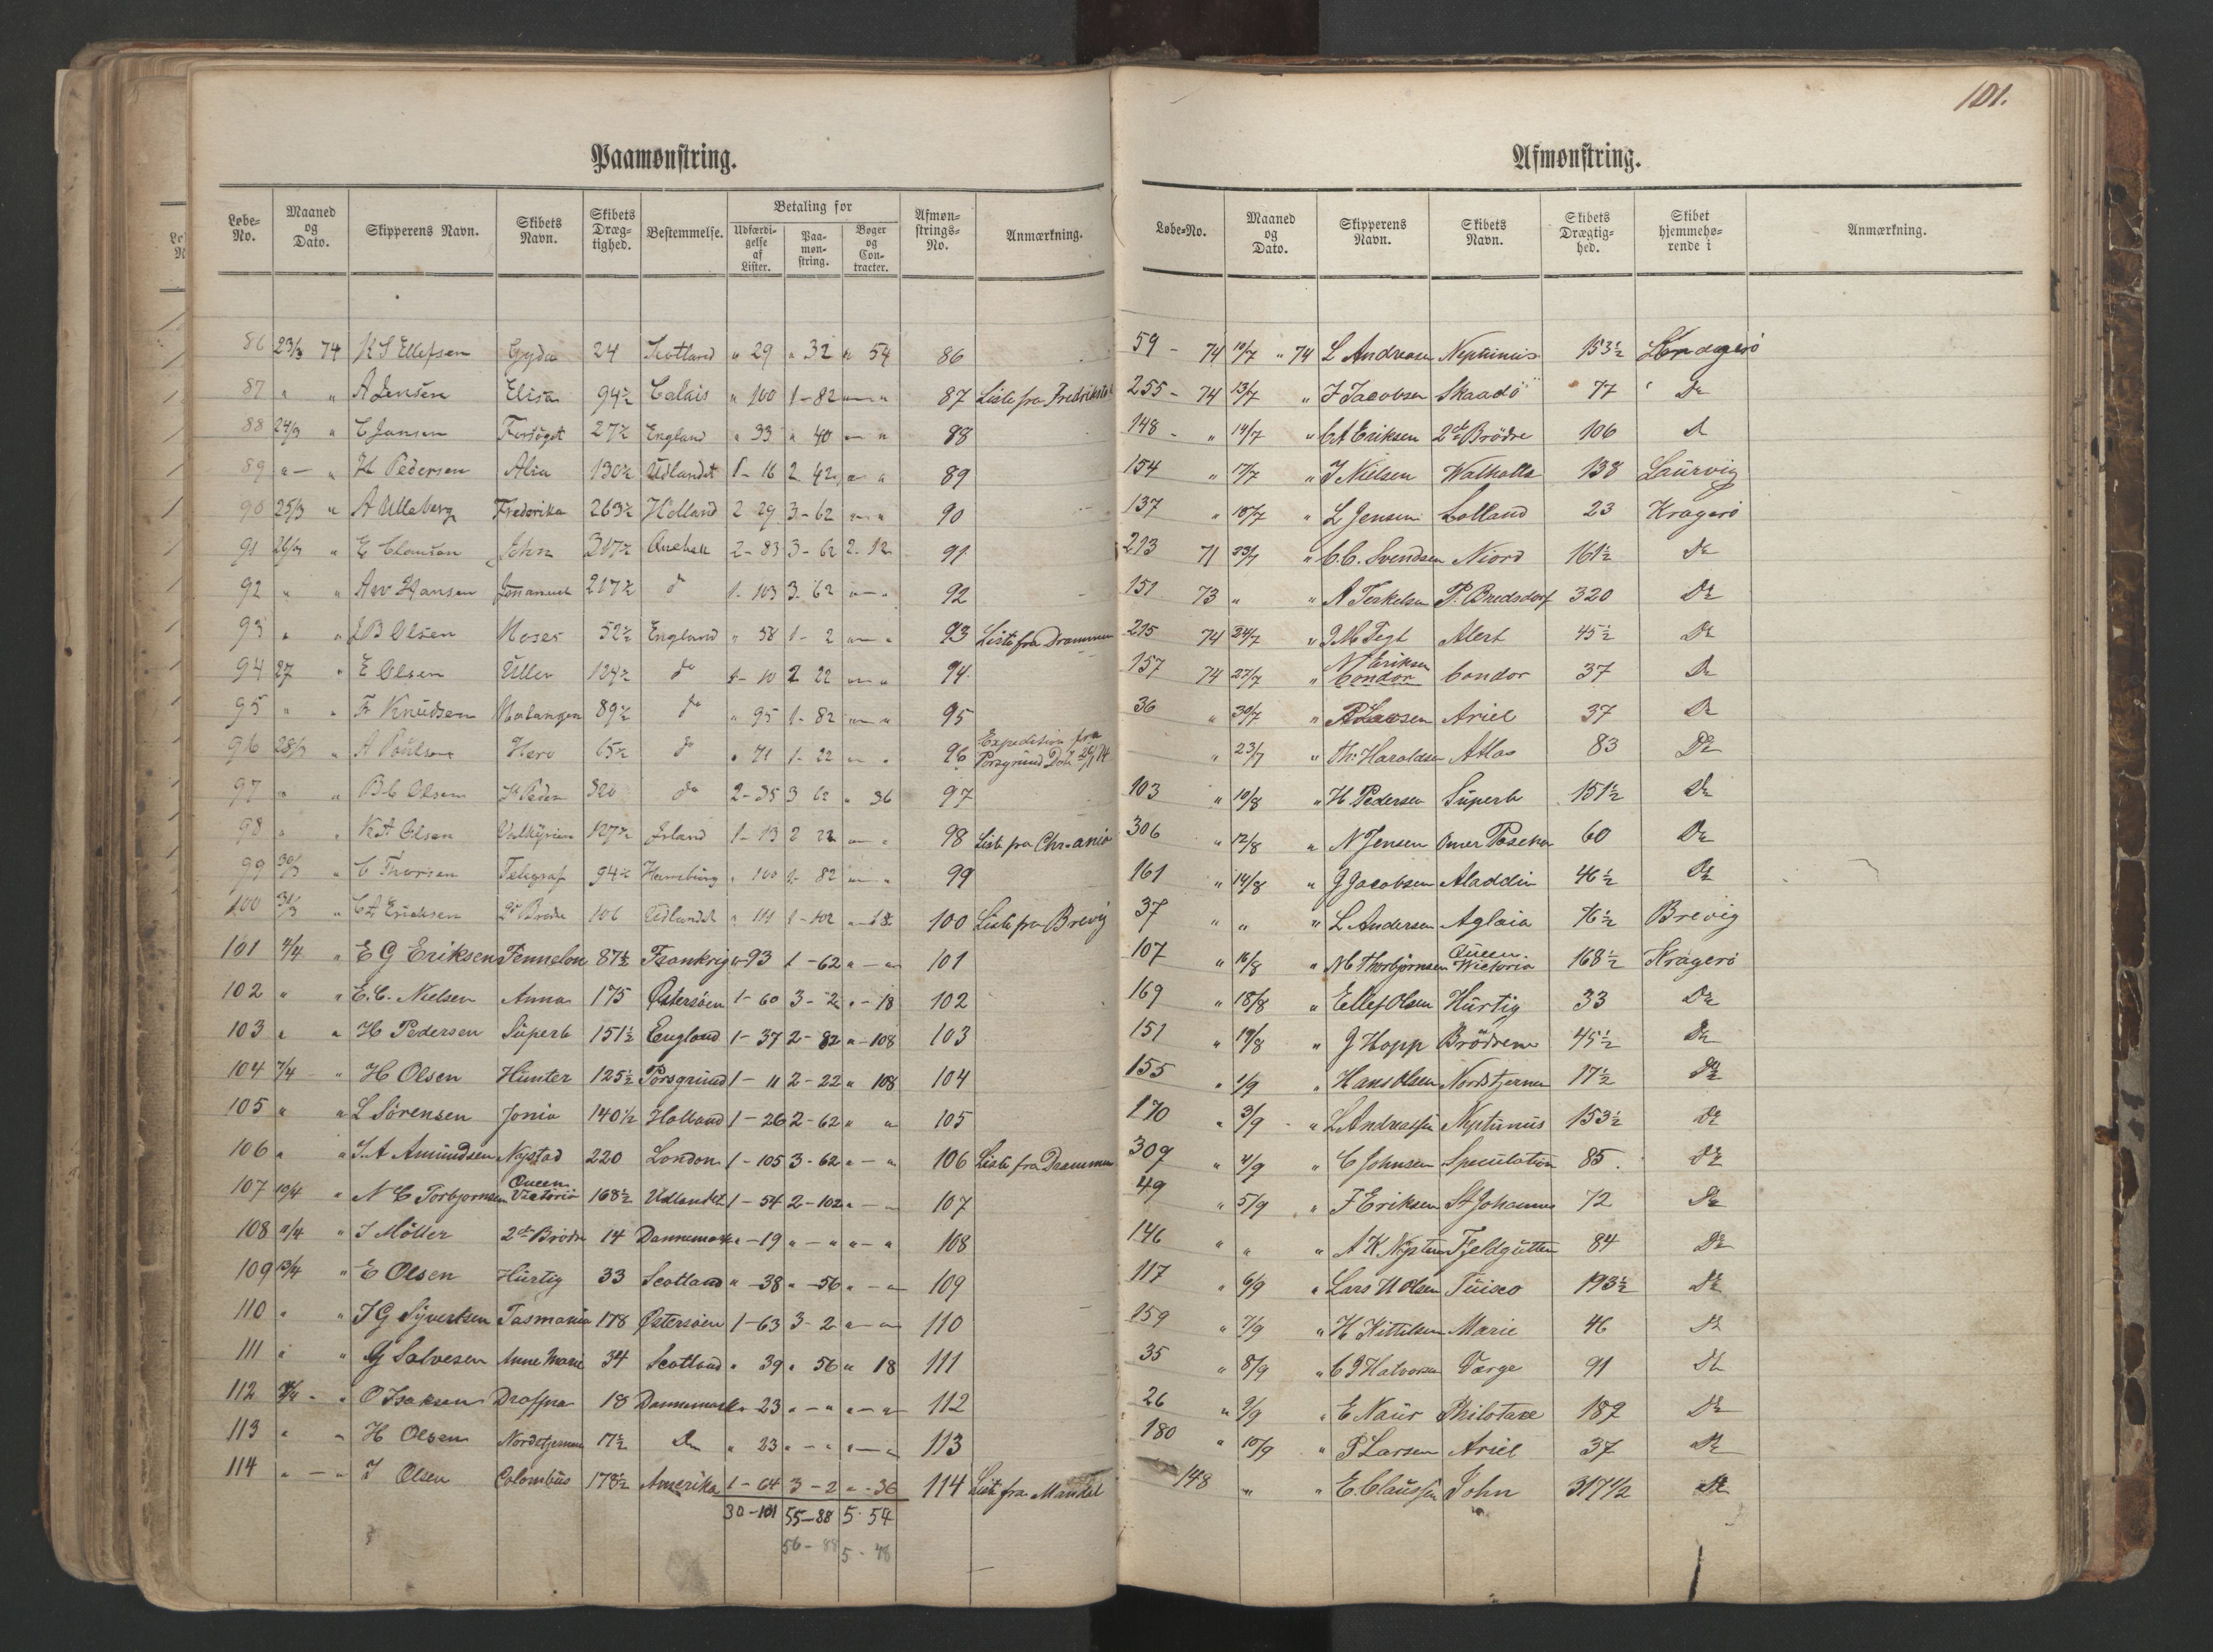 101.
Paamønstring.
Løbe-No. Maaned og Dato. Skipperens Navn. Skibets Navn. Skibets Dræg-tighed. Bestemmelse. Betaling for Udfærdi-gelse af Lister. Paa-møn-string. Bøger og Con-tracter. Afmøn-strings-No. Anmærkning.
86 23/3 74 K S Ellefsen Gyda 24 Scotland " 29 " 32 " 54 86
87 " " A Jensen Elisa 94½ Calais " 100 1-82 " — " 87 Liste fra Fredrikstad
88 24/3 " C Jansen Forsöget 27½ England " 33 " 40 " — " 88
89 " — " H Pedersen Alia 130½ Udlandet 1-16 2 42 " — " 89
90 25/3 " A Ulleberg Frederika 263½ Holland 2 29 3-62 " — " 90
91 26/3 " E Clausen John 317½ Quebek 2-83 3-62 2-12 91
92 " " A W Hansen 217½ do 1-103 3-62 " — " 92
93 " " J B Olsen Moses 52½ England " 58 1-2 " — " 93 Liste fra Drammen
94 27 " E Olsen Uller 124½ do 1-10 2 22 " — " 94
95 " " Fr Knudsen Malangen 89½ do " 95 1-82 " — " 95
96 28/3 " A Poulsen Hero 65½ do " 71 1-22 " — " 96 Expedition fra Porsgrund
97 " " B C Olsen St Peder 320 do 2-35 3 62 " 36 97
98 " " K A Olsen Valkyrien 127½ Irland 1-13 2 22 " — " 98 Liste fra Chr-ania
99 30/3 " C Thorsen Telegraf 94½ Hamburg " 100 1-82 " — " 99
100 31/3 " C A Eriksen 2de Brødre 106 Udlandet " 111 1-102 " -18 100 Liste fra Brevig
101 4/4 " E G Eriksen Fennelon 87½ Frankrig " 93 1-62 " — " 101
102 " " E. C. Nielsen Anna 175 Østersöen 1-60 3-2 " -18 102
103 " " H Pedersen Superb 151½ England 1-37 2-82 " -108 103
104 7/4 " H Olsen Hunter 125½ Porsgrund 1-11 2-22 " 108 104
105 " " L Sörensen Jonia 140½ Holland 1-26 2-62 " " 105
106 " " J. A Amundsen Nystad 220 London 1-105 3-62 " — " 106 Liste fra Drammen
107 10/4 " N C Torbjornsen Queen Victoria 168½ Udlandet 1-54 2-102 " — " 107
108 11/4 " J Möller 2de Brødre 14 Dannemark " -19 " — " " — " 108
109 13/4 " E Olsen Hurtig 33 Scotland " -38 " -56 " — " 109
110 " " J G Syvertsen Tasmania 178 Østersöen 1-63 3-2 " — " 110
111 " " G Salvesen Anne Marie 34 Scotland " 39 " 56 " 18 111
112 " O Isaksen 18 Dannemark " 23 " — " " — " 112
113 " " H Olsen Nordstjernen 17½ Do " 23 " — " " — " 113
114 " — " J Olsen Colombus 178½ Amerika 1-64 3-2 " -36 114 Liste fra Mandal
30-101 55-88 5-54
56-88 5-48
Afmønstring.
Løbe-No. Maaned og Dato. Skipperens Navn. Skibets Navn. Skibets Drægtig-hed. Skibet hjemmehø-rende i Anmærkning.
59 - 74 10/7 " 74 L Andreasen Neptunus 153½ Kragerö
255 - 74 13/7 " J Jacobsen Skaadö 77 Do
148 - " 14/7 " C A Eriksen 2de Brödre 106 d
154 " 17/7 " J Nielsen Walhalla 138 Laurvig
137 " 18/7 " L Jensen Lolland 23 Kragerö
213 71 23/7 " C. C. Svendsen Niord 161½ Do
151 73 " " A Terkelsen P. Bredsdorf 320 Do
215 74 24/7 " Alert 45½ Do
157 74 27/7 " N Eriksen Condor Condor 37 Do
36 " 30/7 " P Larsen Ariel 37 Do
" 23/7 " Th. Haraldsen Atlas 83 Do
103 " 10/8 " H Pedersen Superb 151½ Do
306 " 12/8 " N Jensen Omer Pascha 60 Do
161 " 14/8 " G Jacobsen Aladdin 46½ Do
37 " " " L Andersen Aglaia 76½ Brevig
107 " 16/8 " N C Thorbjörnsen Queen Wictoria 168½ Kragerö
169 " 18/8 " Ellef Olsen Hurtig 33 Do
151 " 19/8 " J Hopp Brödrene 45½ Do
155 " 1/9 " Hans Olsen Nordstjernen 17½ Do
170 " 3/9 " L Andreassen Neptunus 153½ Do
309 " 4/9 " C Johnsen Speculation 85 Do
49 " 5/9 " F Eriksen St Johannes 72 Do
146 " " " A K Fjeldgutten 84 Do
117 " 6/9 " Lars U Olsen Tuisco 193½ Do
159 " 7/9 " H Kittilsen Marie 46 Do
35 " 8/9 " C J Halvorsen Værge 91 Do
26 " 9/9 " E Naur Philotaxe 187 Do
180 " 10/9 " P Larsen Ariel 37 Do
148 " " E. Claussen John 317½ Do